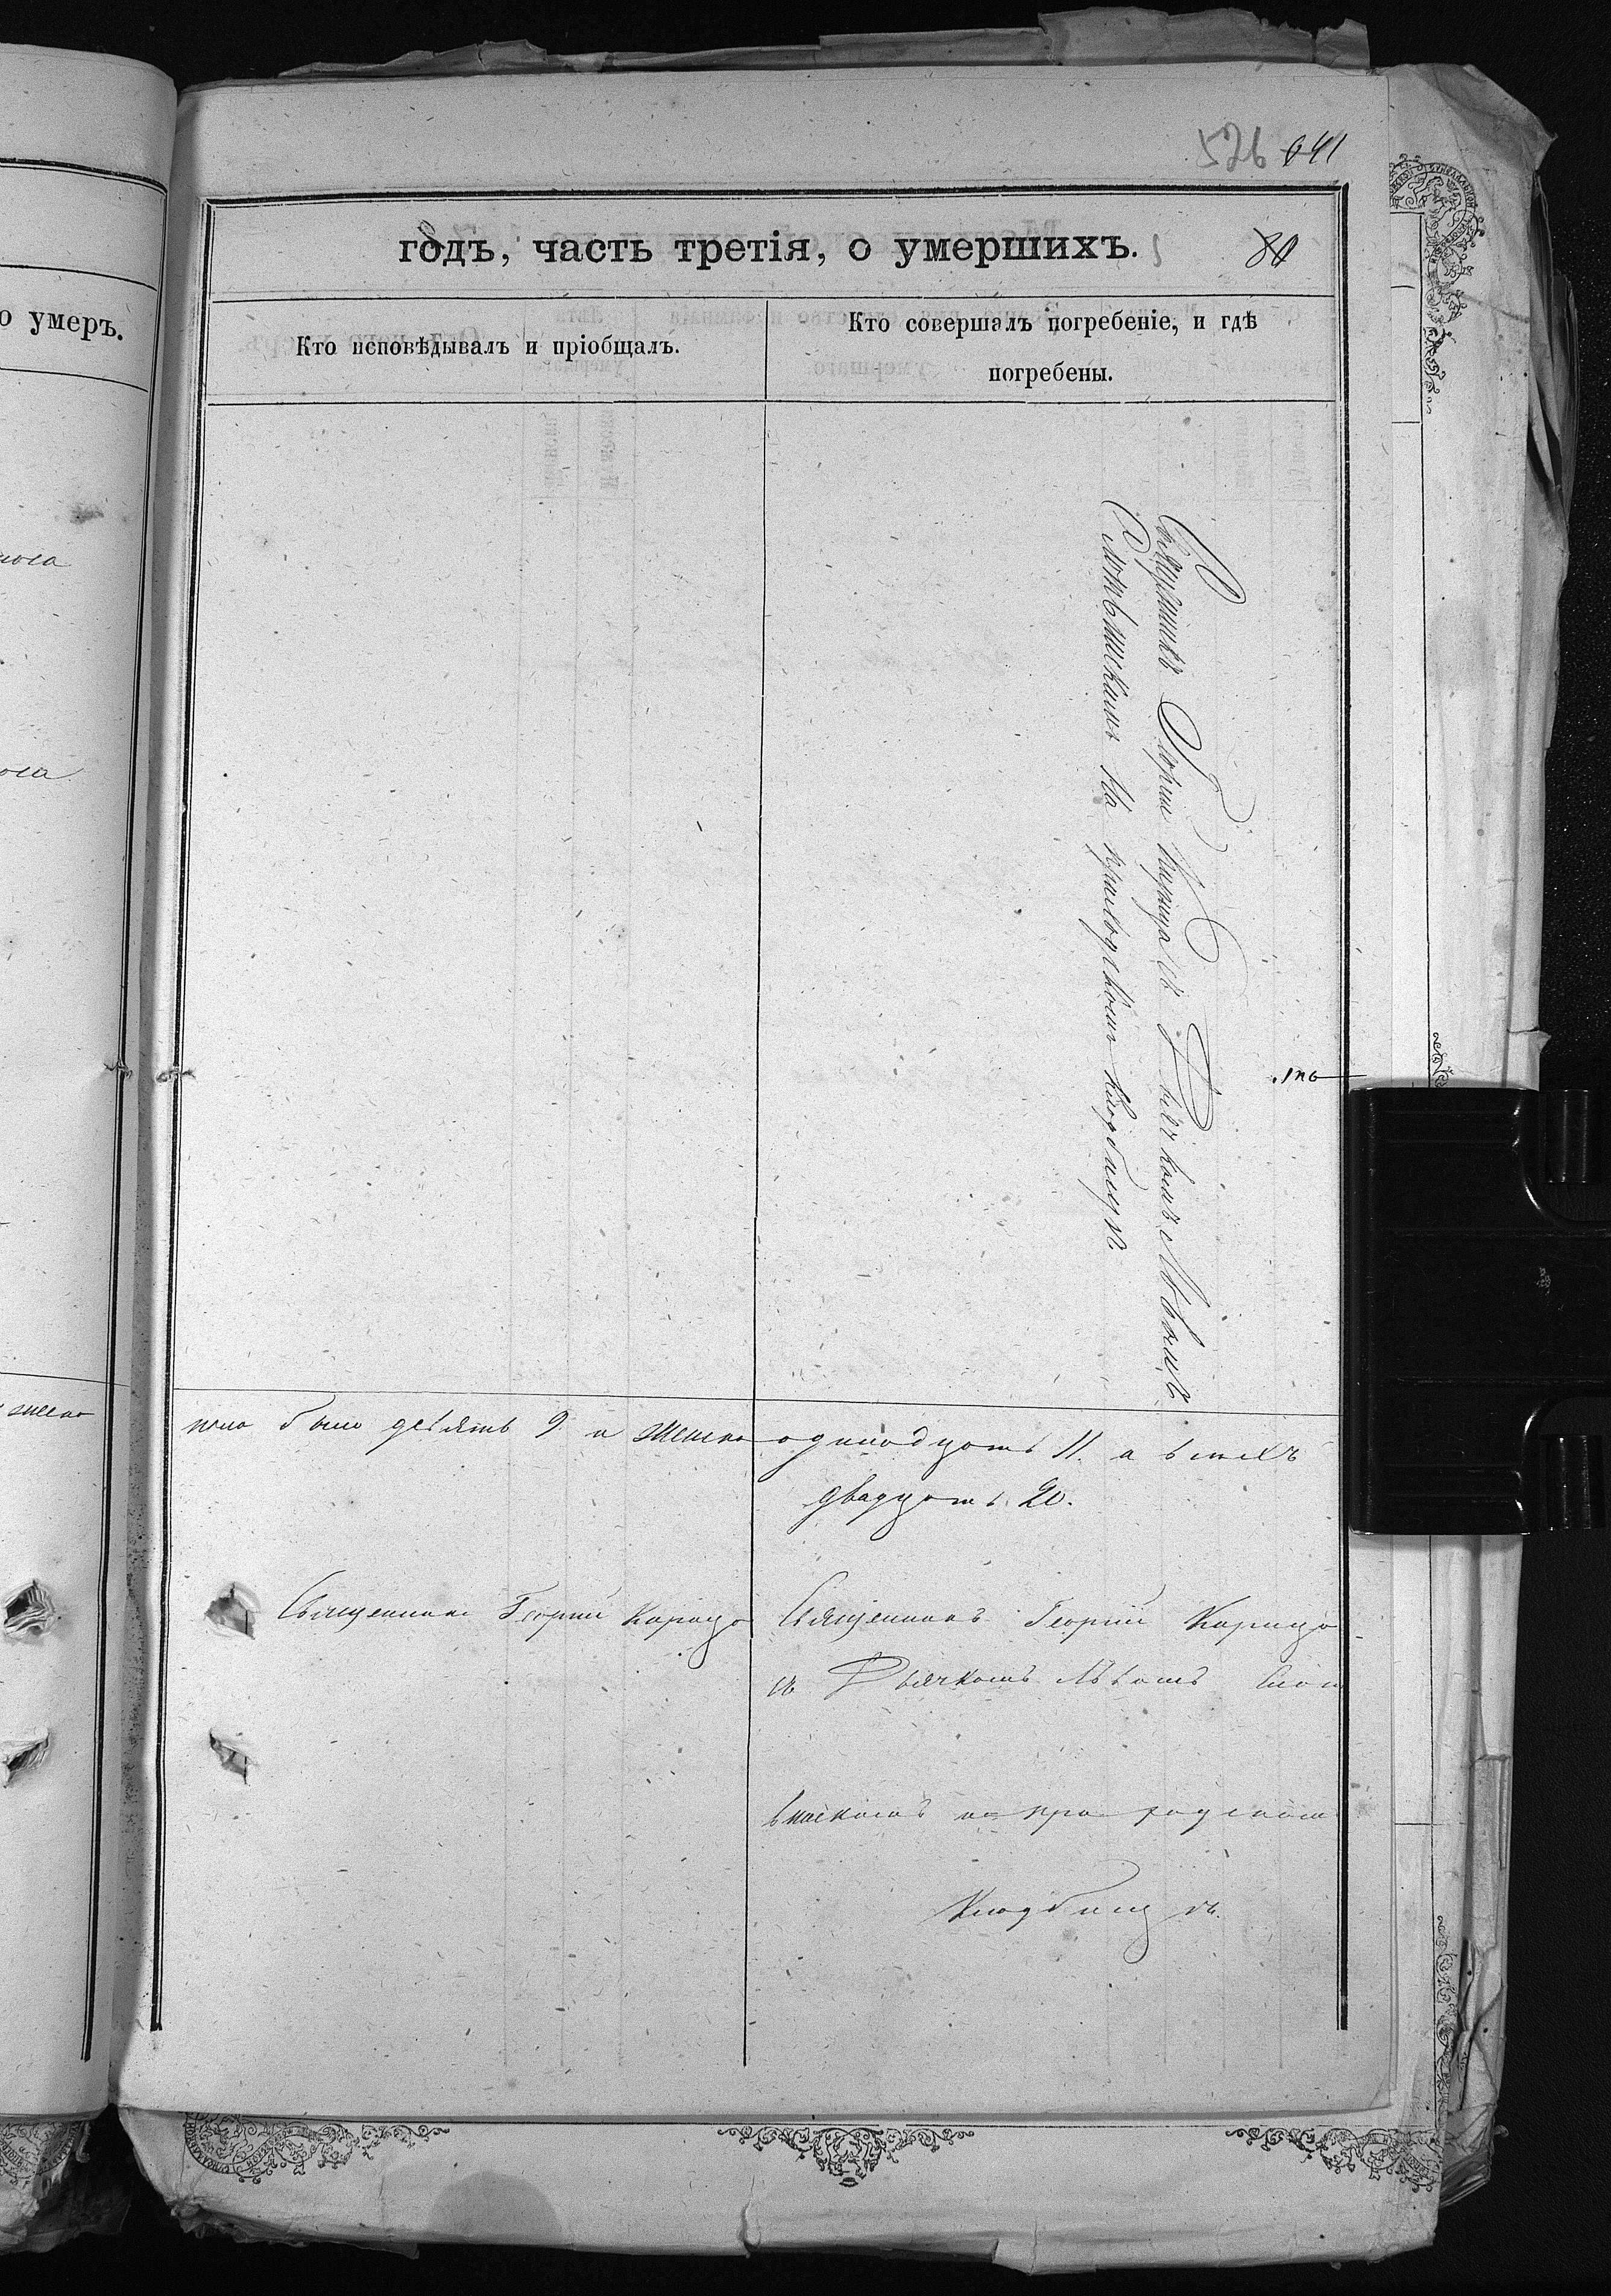 526 641
годъ, часть третія, о умершихъ.
80
о умеръ.
Кто исповѣдывалъ и пріобщалъ.
Кто совершалъ погребеніе, и гдѣ
погребены.
Священникъ Георгій Карица съ Дьячкомъ Львомъ
на приходскомъ кладбищѣ
было девять 9 и женска одинадцать 11. а всихъ
двадцать 20.
Священникъ Георгій Карица
Священникъ Георгій Карица
съ Дьячкомъ Львомъ
на приходскомъ
Кладбищѣ.